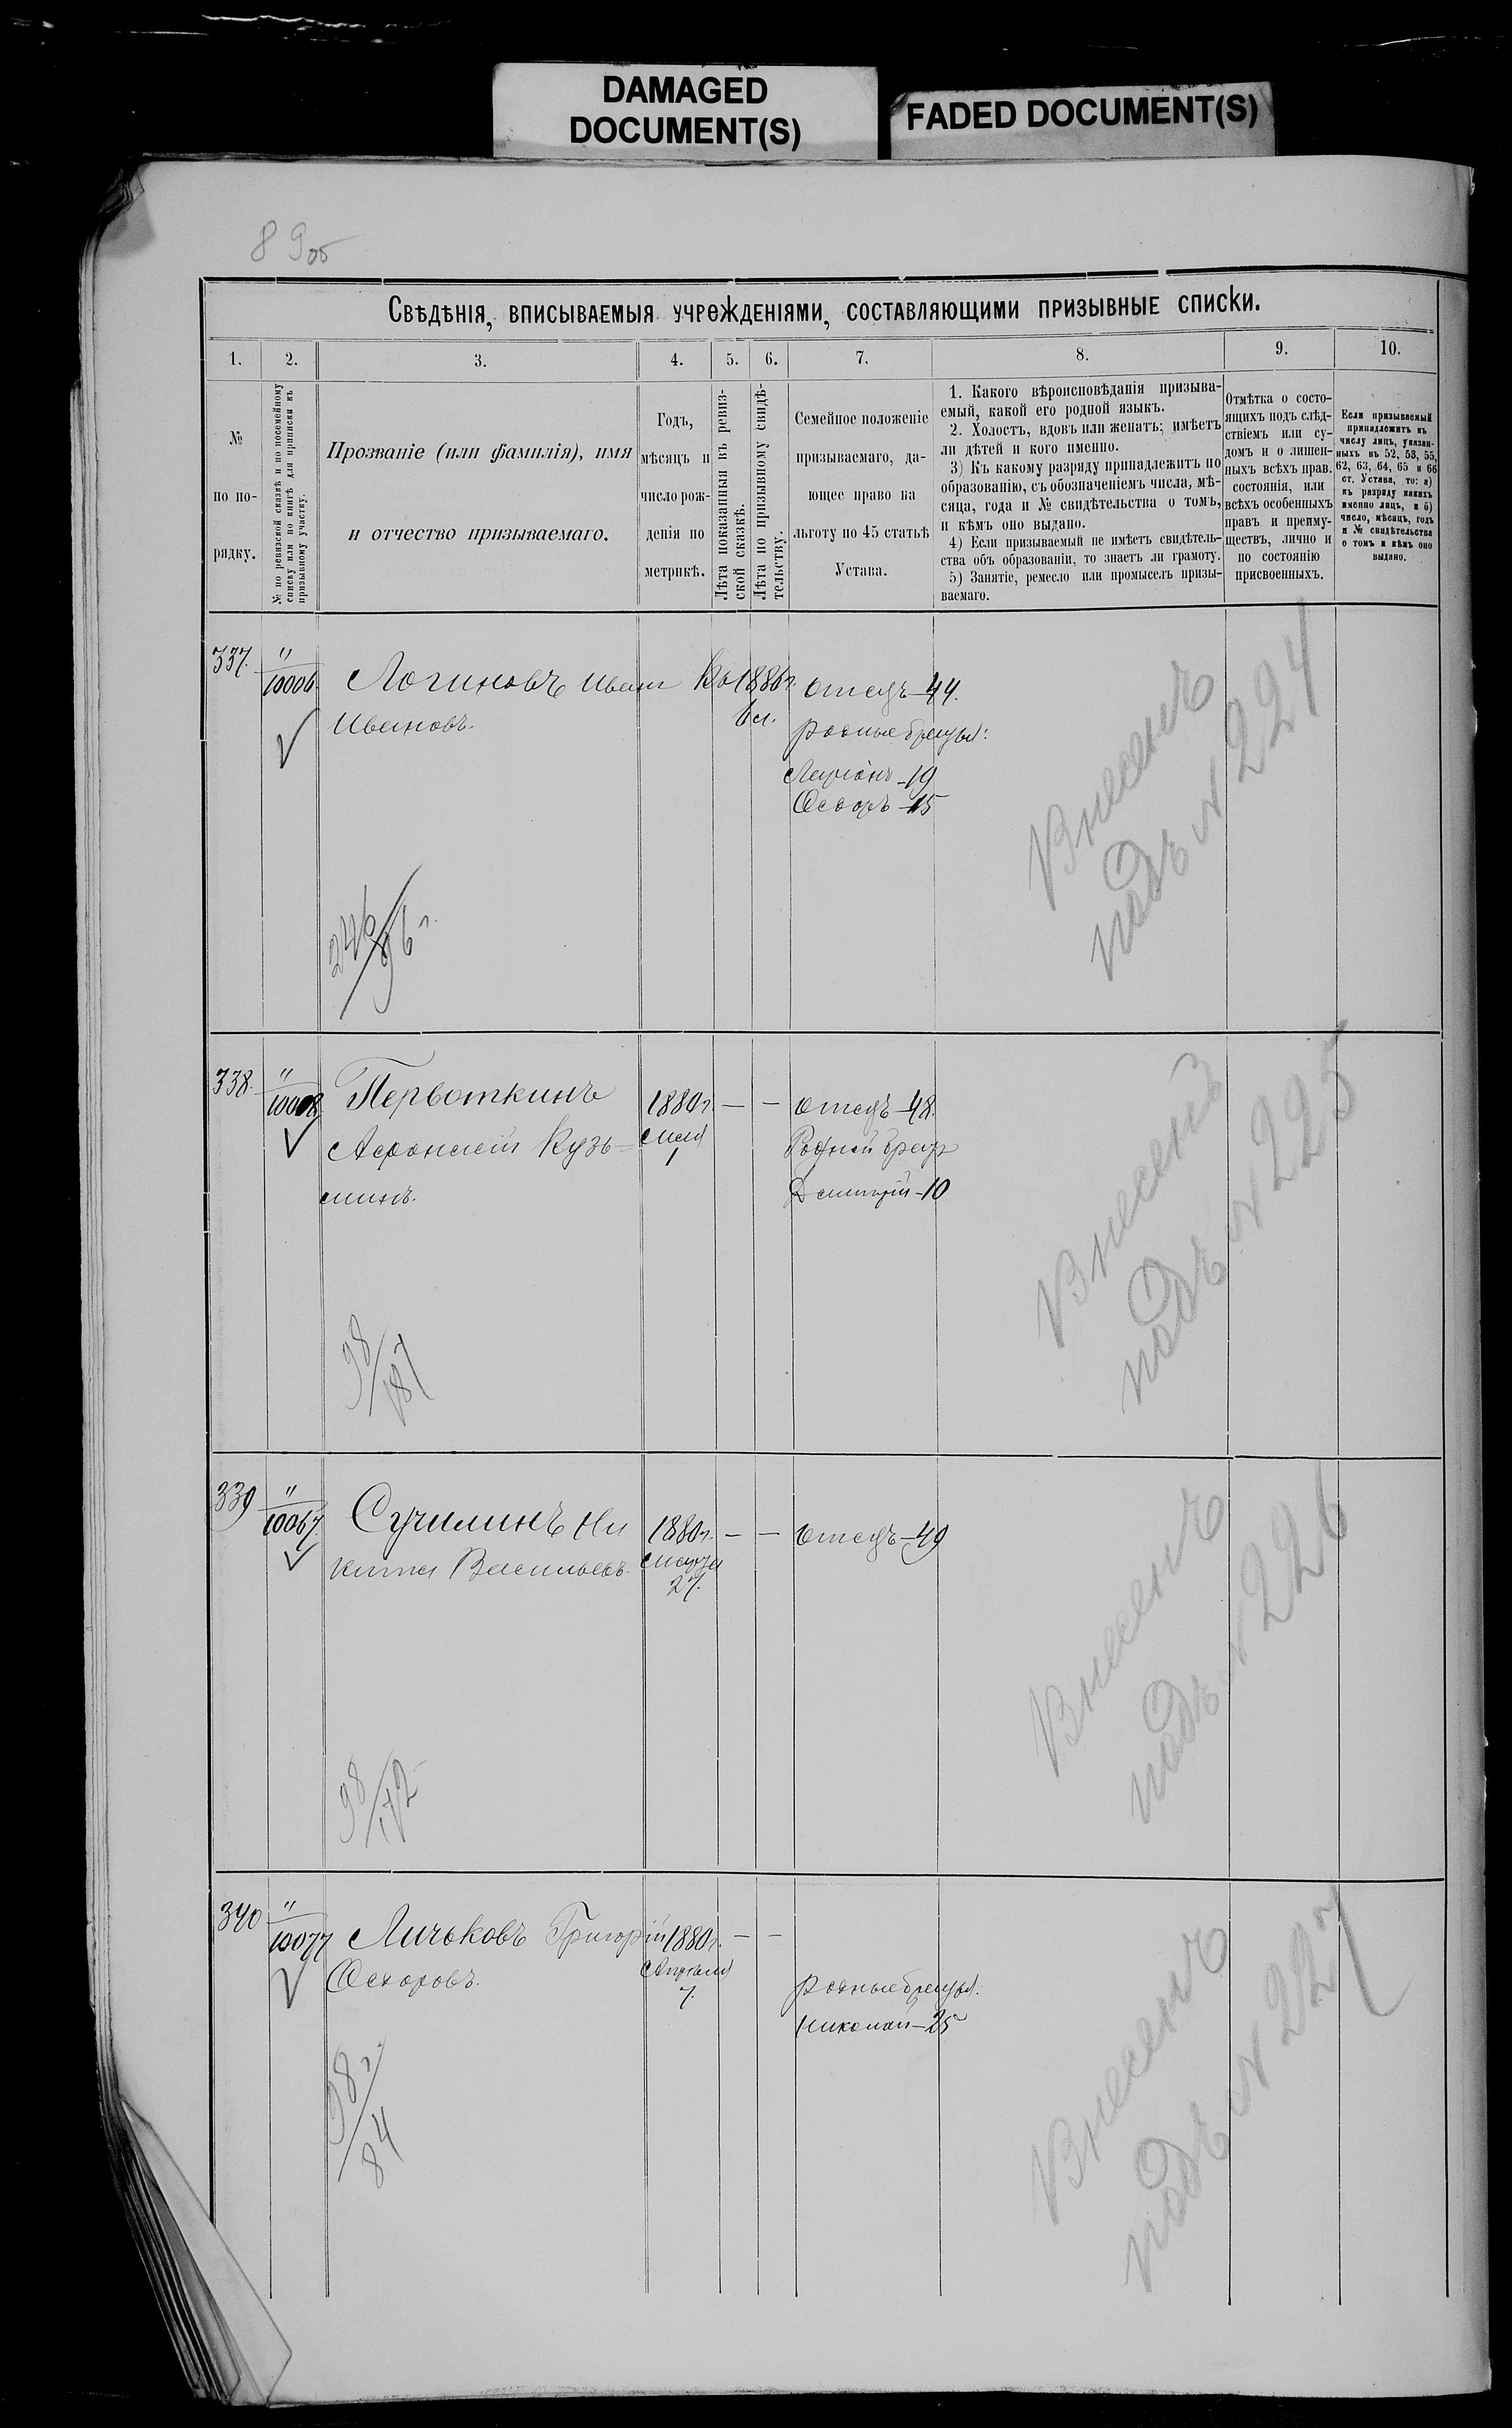 DAMAGED
DOCUMENT(S)
FADED DOCUMENT(S)
89об
Свѣдѣнія, вписываемыя учрежденіями, составляющими призывные списки.
1.
2.
3.
4.
5.
6.
7.
8.
9.
10.
№
по по-
рядку.
№ по ревизской сказкѣ и по посемейному
списку или по книгѣ для приписки къ
призывному участку.
Прозваніе (или фамилія), имя
и отчество призываемаго.
Годъ,
мѣсяцъ и
число рож-
денія по
метрикѣ.
Лѣта показанныя въ ревиз-
ской сказкѣ.
Лѣта по призывному свидѣ-
тельству.
Семейное положеніе
призываемаго, да-
ющее право на
льготу по 45 статьѣ
Устава.
1. Какого вѣроисповѣданія призыва-
емый, какой его родной языкъ.
2. Холостъ, вдовъ или женатъ; имѣетъ
ли дѣтей и кого именно.
3) Къ какому разряду принадлежитъ по
образованію, съ обозначеніемъ числа, мѣ-
сяца, года и № свидѣтельства о томъ,
и кѣмъ оно выдано.
4) Если призываемый не имѣетъ свидѣтель-
ства объ образованіи, то знаетъ ли грамоту.
5) Занятіе, ремесло или промыселъ призы-
ваемаго.
Отмѣтка о состо-
ящихъ подъ слѣд-
ствіемъ или су-
домъ и о лишен-
ныхъ всѣхъ прав.
состоянія, или
всѣхъ особенныхъ
правъ и преиму-
ществъ, лично и
по состоянію
присвоенныхъ.
Если призываемый
принадлежитъ къ
числу лицъ, указан-
ныхъ въ 52, 53, 55,
62, 63, 64, 65 и 66
ст. Устава, то: а)
къ разряду какихъ
именно лицъ, и б)
число, мѣсяцъ, годъ
и № свидѣтельства
о томъ и кѣмъ оно
выдано.
337.
"
10006
Логиновъ Иванъ
Ивановъ.
Въ 1886 г.
6 л.
отецъ—44.
родные братья:
Ларіонъ—19
Ѳедоръ—15
Внесенъ
подъ № 224
246/96 г.
338.
"
10008
Первоткинъ
Афанасій Кузь-
минъ.
1880 г.
мая
1
— —
отецъ—48.
Родной братъ
Дмитрій—10
Внесенъ
подъ № 225
98/181
339
"
10067.
Сучилинъ Ни
кита Васильевъ.
1880 г.
марта
27.
— —
отецъ—49
Внесенъ
подъ № 226
98/172
340
"
10077
Личьковъ Григорій
Ѳедоровъ.
1880 г.
Апрѣля
7.
— —
родные братья:
Николай—25
Внесенъ
подъ № 227
98 г./84